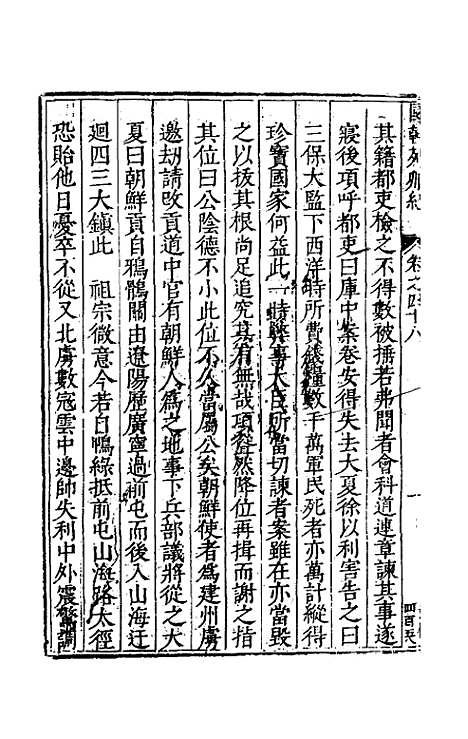 國朝列卿紀
卷之四十八
一
其籍都吏檢之不得數被捶若弗聞者會科道連章諫其事遂
寢後項呼都吏曰庫中案卷安得失去大夏徐以利害告之曰
三保大監下西洋時所費錢糧數千萬軍民死者亦萬計縱得
珍寶國家何益此一時弊事大臣所當切諫者案雖在亦當毀
之以拔其根尚足追究其有無哉項聳然降位再揖而謝之指
其位曰公陰德不小此位不久當屬公矣朝鮮使者為建州虜
邀劫請改貢道中官有朝鮮人為之地事下兵部議將從之大
夏曰朝鮮貢自鴉鶻關由遼陽歷廣寧過前屯而後入山海迂
廻四三大鎮此 祖宗微意今若自鴨綠抵前屯山海路太徑
恐貽他日憂卒不從又北虜數寇雲中邊帥失利中外震